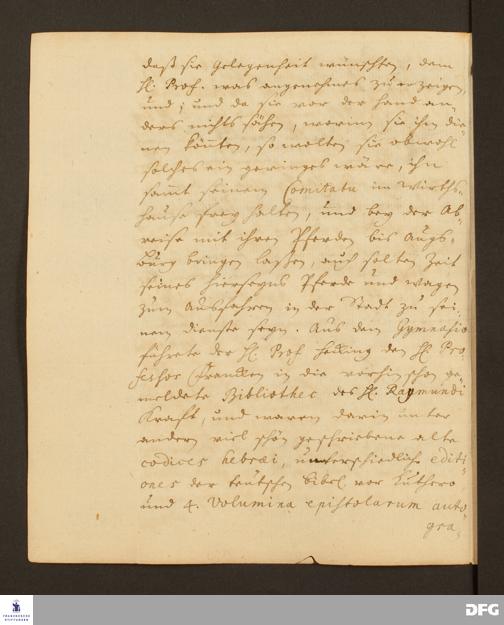 daß sie gelegenheit wünschten, dem
H. Prof. was angenehmes zu erzeigen,
und, und da sie vor der hand an-
ders nichts sähen, worin sie ihm die-
nen könten, so wolten sie obwohl
solches ein geringes wäre, ihn
samt seinem Comitatu im Wirths-
hause frey halten, und bey der Ab-
reise mit ihren Pferden bis Augs-
burg bringen lassen, auch solten Zeit
seines hierseyns Pferde und Wagen
zum Ausfahren in der Stadt zu sei-
nem dienste seyn. Aus dem Gymnasio
führete der H. Prof. den H. Pro-
fessor Francken in die vorhin schon ge-
meldete Bibliothec des H. Raymundi
Kraft, und waren darin unter
andern viel schön geschriebene alte
codices hebræi, unterschiedliche editi-
ones der teutschen Bibel vor Luthero
und 4. Volumina epistolarum auto-
gra-
FRANCKESCHE
STIFTUNGEN
DFG